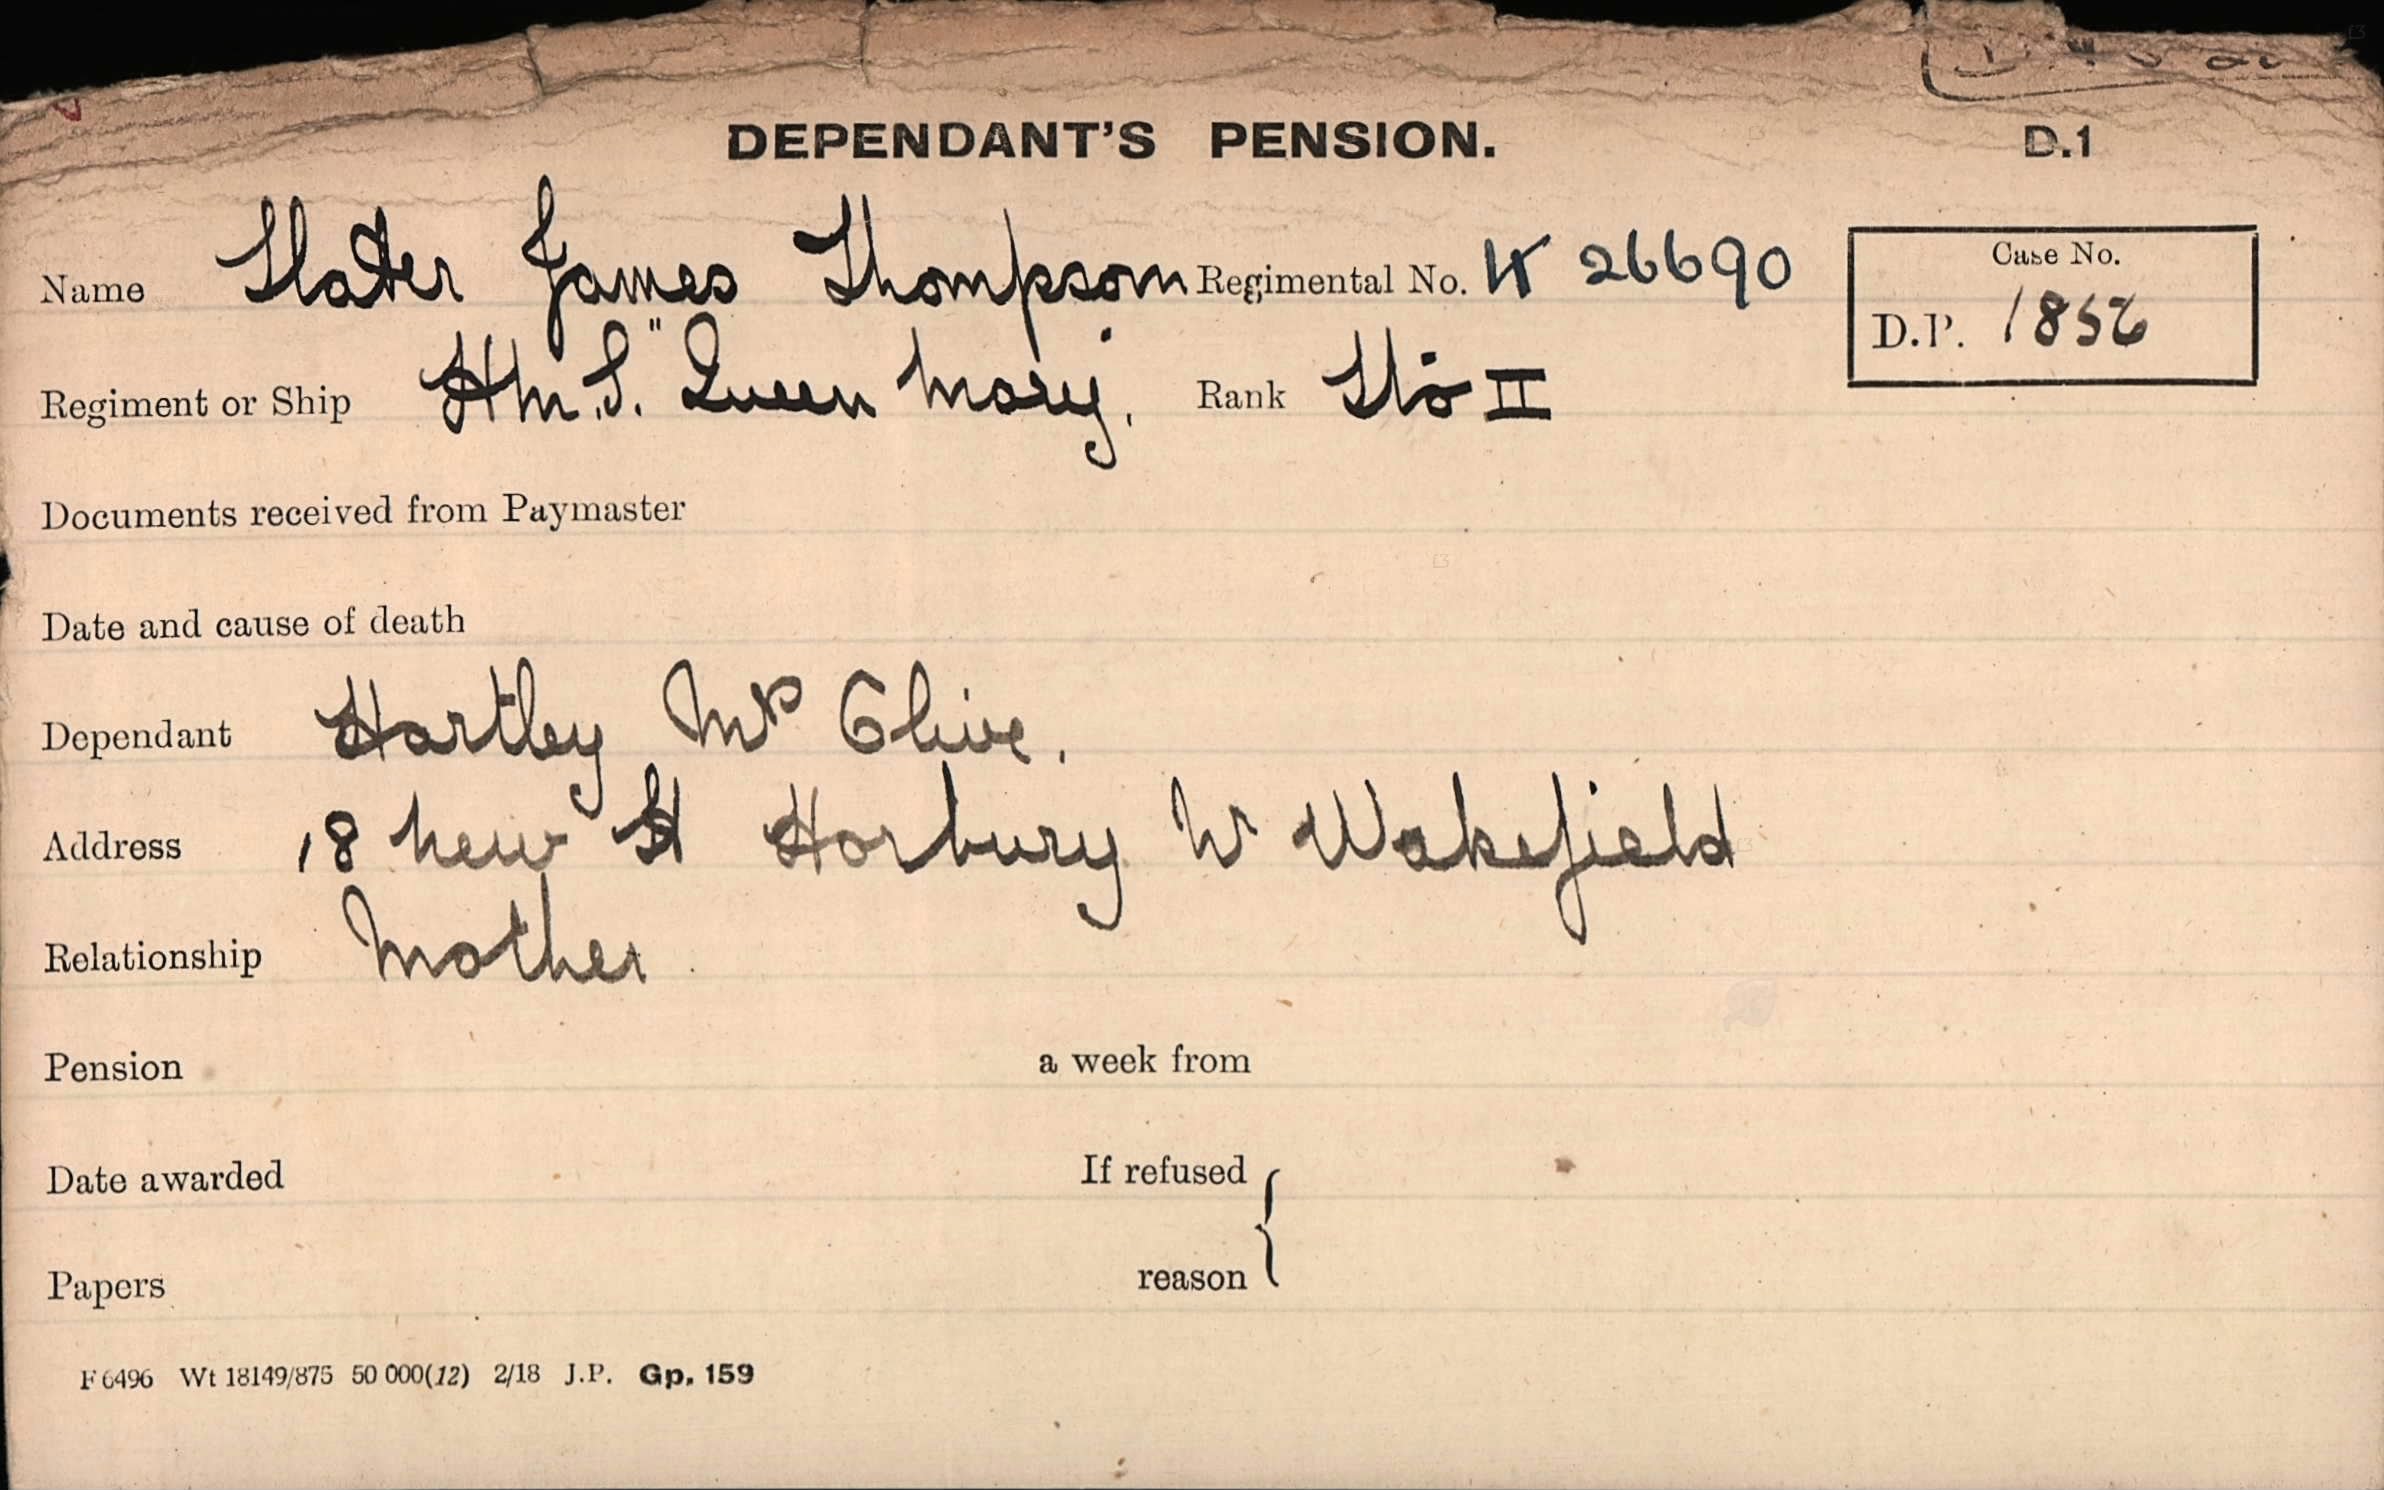 DEPENDANT'S PENSION. D.1
Name Slater James Thompson Regimental No. K 26690
Case No.
D.P. 1856
Regiment or Ship H.M.S. "Queen Mary". Rank Sto II
Documents received from Paymaster
Date and cause of death
Dependant Hartley Mrs Olive.
Address 18 New St Horbury Nr Wakefield
Relationship Mother
Pension a week from
Date awarded If refused
Papers reason
F 6496 Wt 18149/875 50 000(12) 2/18 J.P. Gp. 159